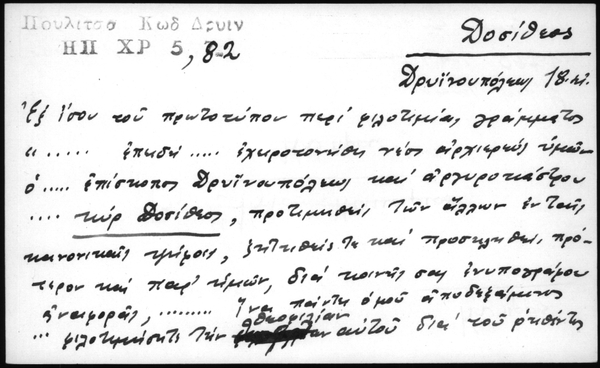 Πουλίτσα Κωδ Δρυιν
ΗΠ ΧΡ 5, 82
Δοσίθεος
Δρυϊνουπόλεως 18. αἰ.
Ἐξ ἴσου τοῦ πρωτοτύπου περί φιλοτιμίας γράμματος
« ..... ἐπειδή ..... ἐχειροτονήθη νέος ἀρχιερεύς ὑμῶν
ὁ ..... ἐπίσκοπος Δρυϊνουπόλεως καί ἀργυροκάστρου
.... κύρ Δοσίθεος, προτιμηθείς τῶν ἄλλων ἐν ταῖς
κανονικαῖς ψήφοις, ζητηθείς τε καί προσκληθείς πρό-
τερον καί παρ' ὑμῶν, διά κοινῆς σας ἐνυπογράφου
ἀναφορᾶς, ......... ἵνα πάντες ὁμοῦ ἀποδεξάμενοι
θεοφιλίαν
... φιλοτιμήσητε τήν αὐτοῦ διά τοῦ ῥηθέντος